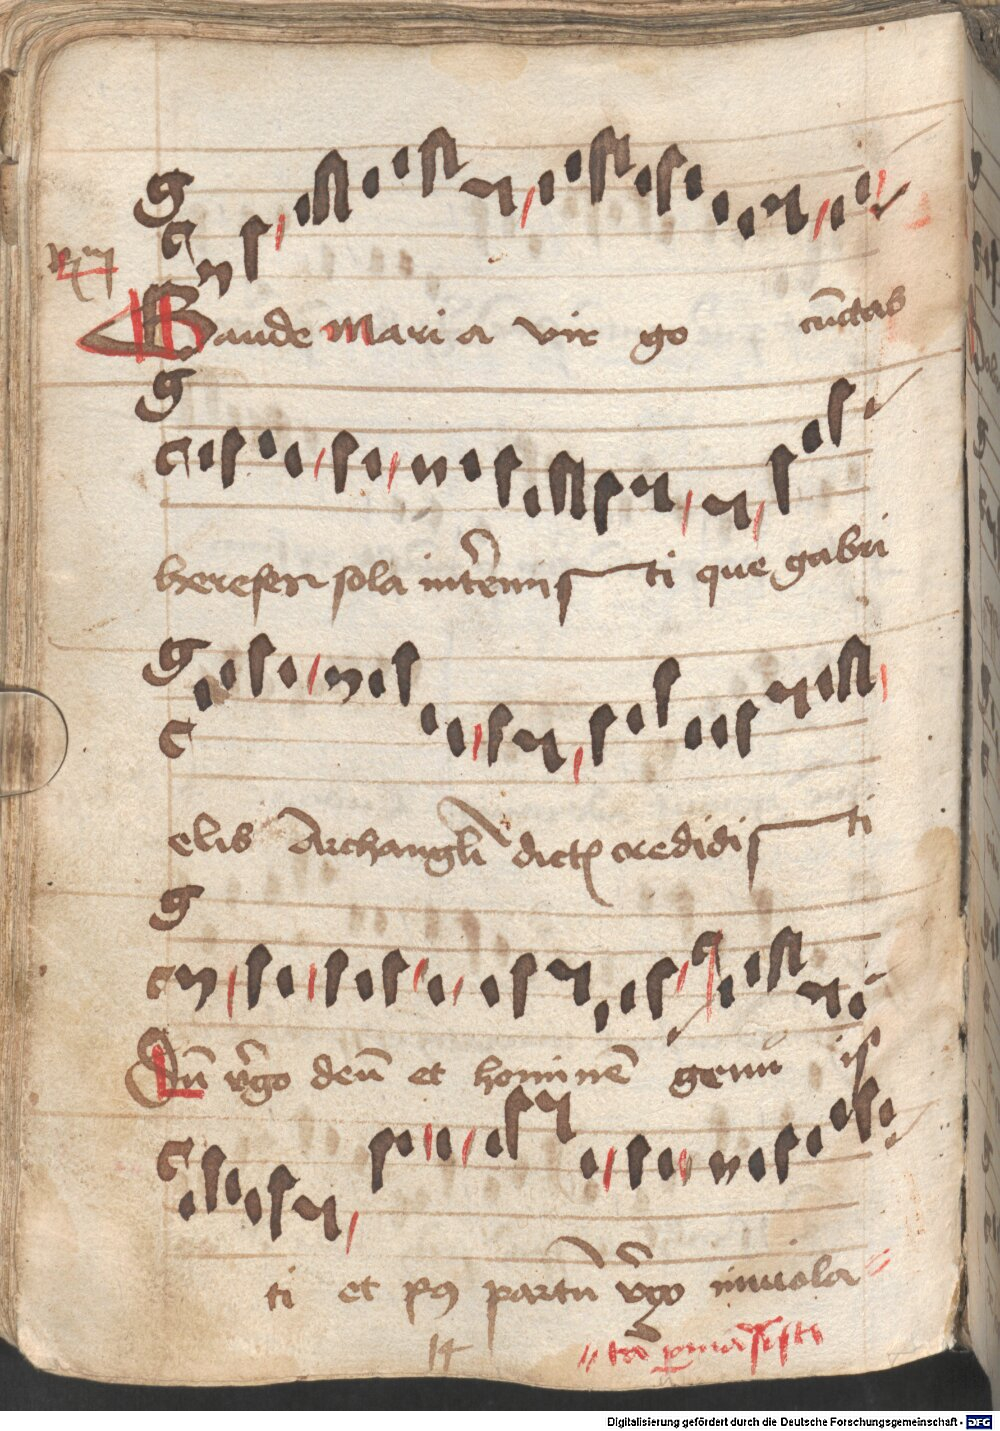 Gaude Maria vir go cūctas
hereses sola int̄emis ti que gabri
elis Archangli dictꝭ credidis ti
Dū v̄go deū et hominē genu is
ti et pꝰ partū v̄go inviola
14 tā ꝑmāsisti
Digitalisierung gefördert durch die Deutsche Forschungsgemeinschaft - DFG